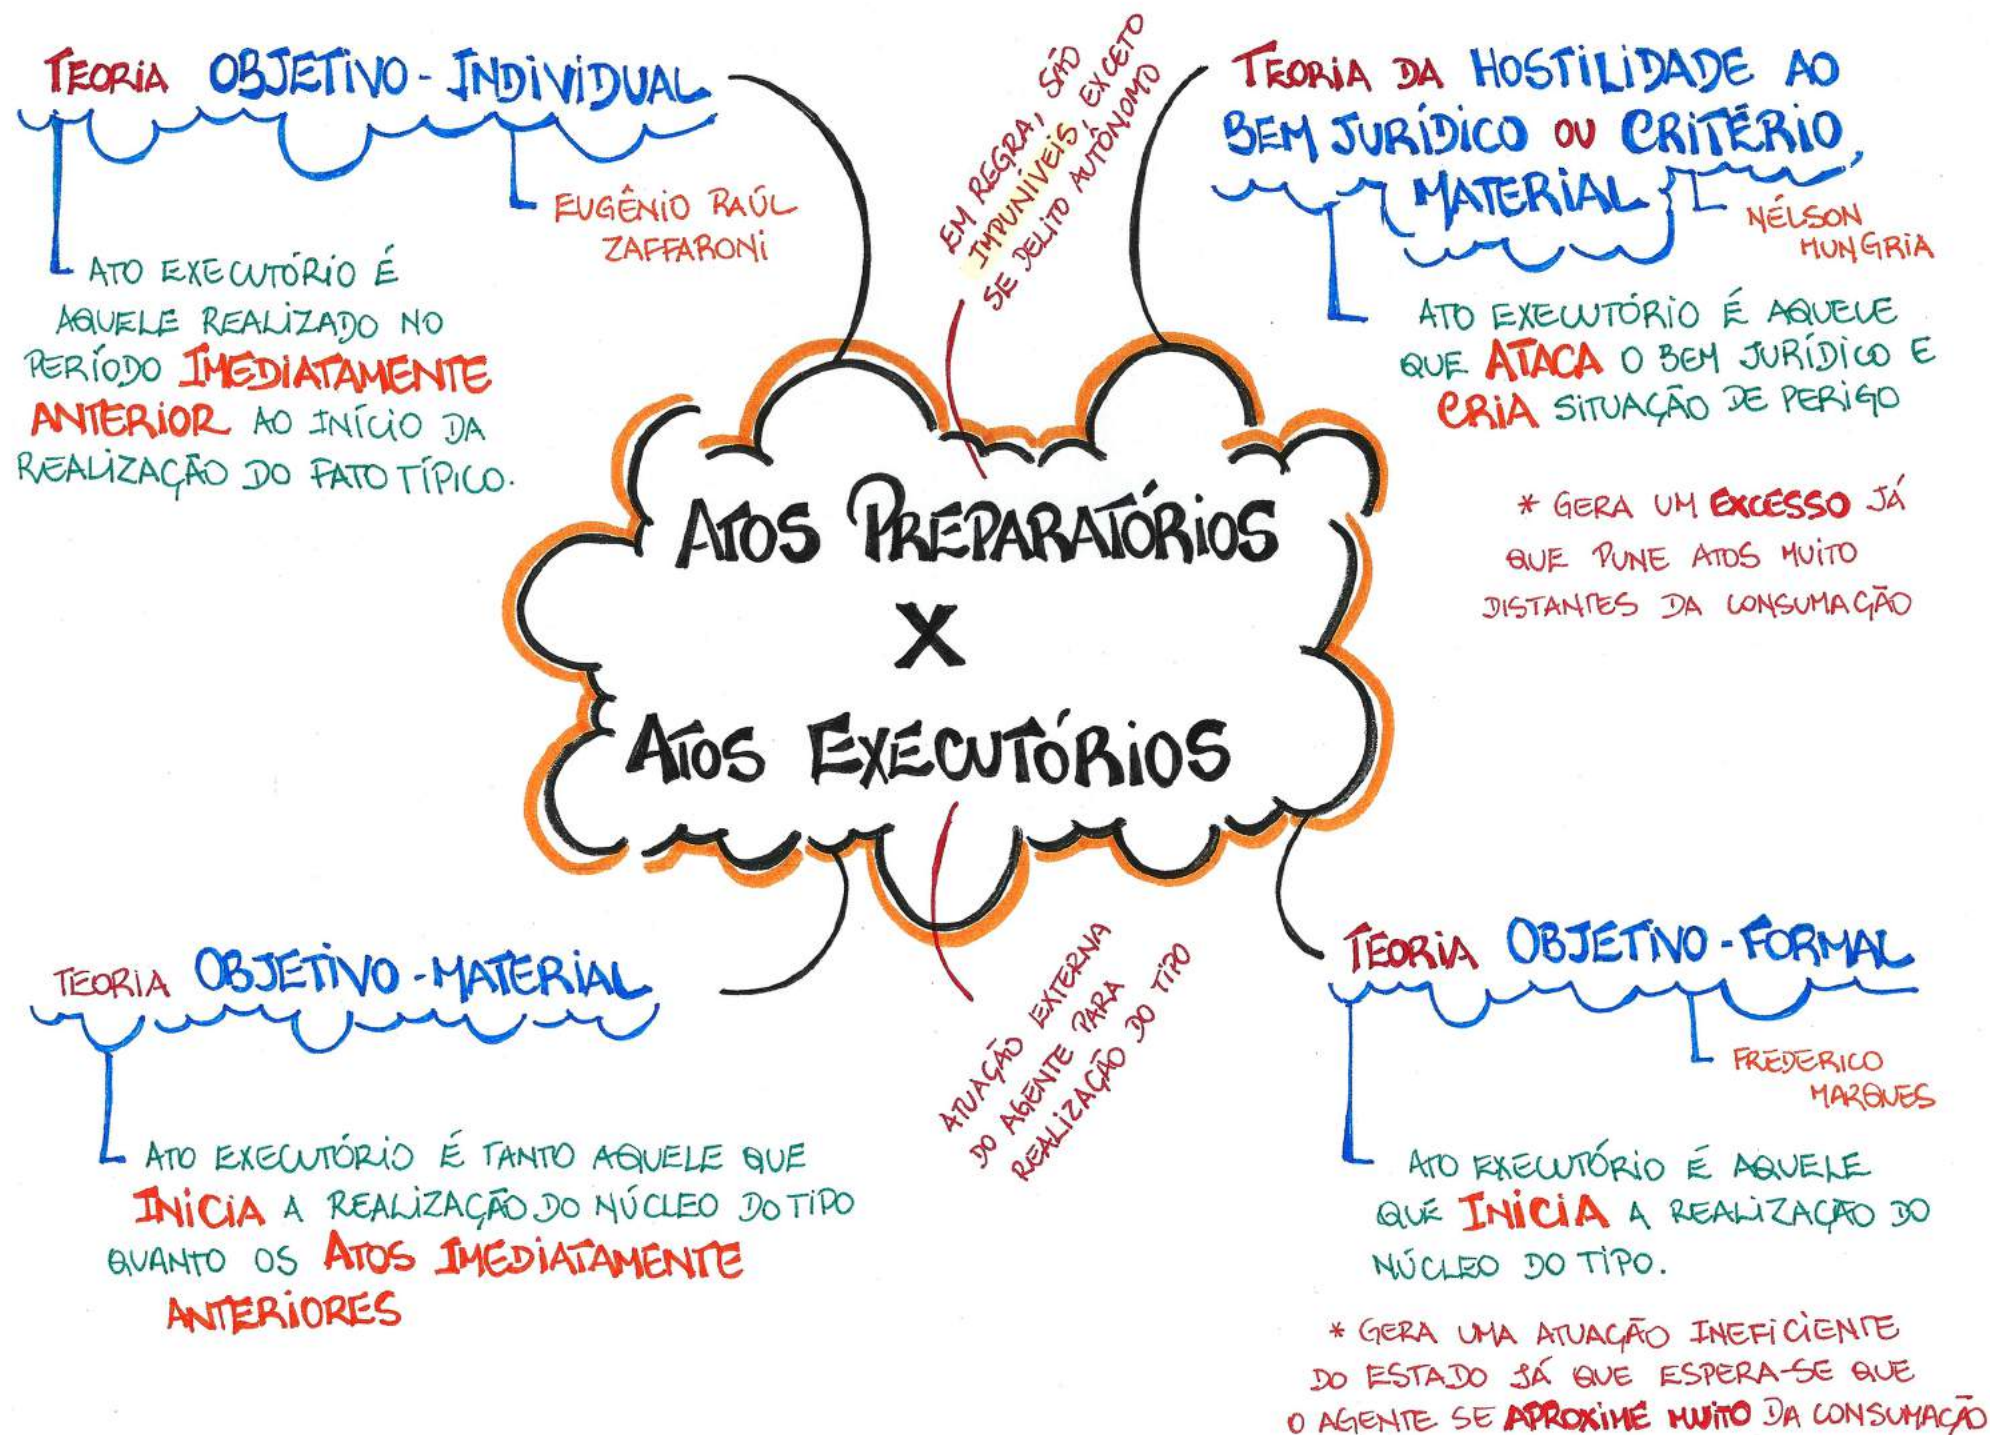 TEORIA OBJETIVO-INDIVIDUAL
EUGÊNIO RAÚL
ZAFFARONI
ATO EXECUTÓRIO É
AQUELE REALIZADO NO
PERÍODO IMEDIATAMENTE
ANTERIOR AO INÍCIO DA
REALIZAÇÃO DO FATO TÍPICO.
EM REGRA, SÃO
IMPUNÍVEIS, EXCETO
SE DELITO AUTÔNOMO
TEORIA DA HOSTILIDADE AO
BEM JURÍDICO OU CRITÉRIO
MATERIAL
NÉLSON
HUNGRIA
ATO EXECUTÓRIO É AQUELE
QUE ATACA O BEM JURÍDICO E
CRIA SITUAÇÃO DE PERIGO
* GERA UM EXCESSO JÁ
QUE PUNE ATOS MUITO
DISTANTES DA CONSUMAÇÃO
ATOS PREPARATÓRIOS
X
ATOS EXECUTÓRIOS
TEORIA OBJETIVO-MATERIAL
ATO EXECUTÓRIO É TANTO AQUELE QUE
INICIA A REALIZAÇÃO DO NÚCLEO DO TIPO
QUANTO OS ATOS IMEDIATAMENTE
ANTERIORES
ATUAÇÃO EXTERNA
DO AGENTE PARA
REALIZAÇÃO DO TIPO
TEORIA OBJETIVO-FORMAL
FREDERICO
MARQUES
ATO EXECUTÓRIO É AQUELE
QUE INICIA A REALIZAÇÃO DO
NÚCLEO DO TIPO.
* GERA UMA ATUAÇÃO INEFICIENTE
DO ESTADO JÁ QUE ESPERA-SE QUE
O AGENTE SE APROXIME MUITO DA CONSUMAÇÃO